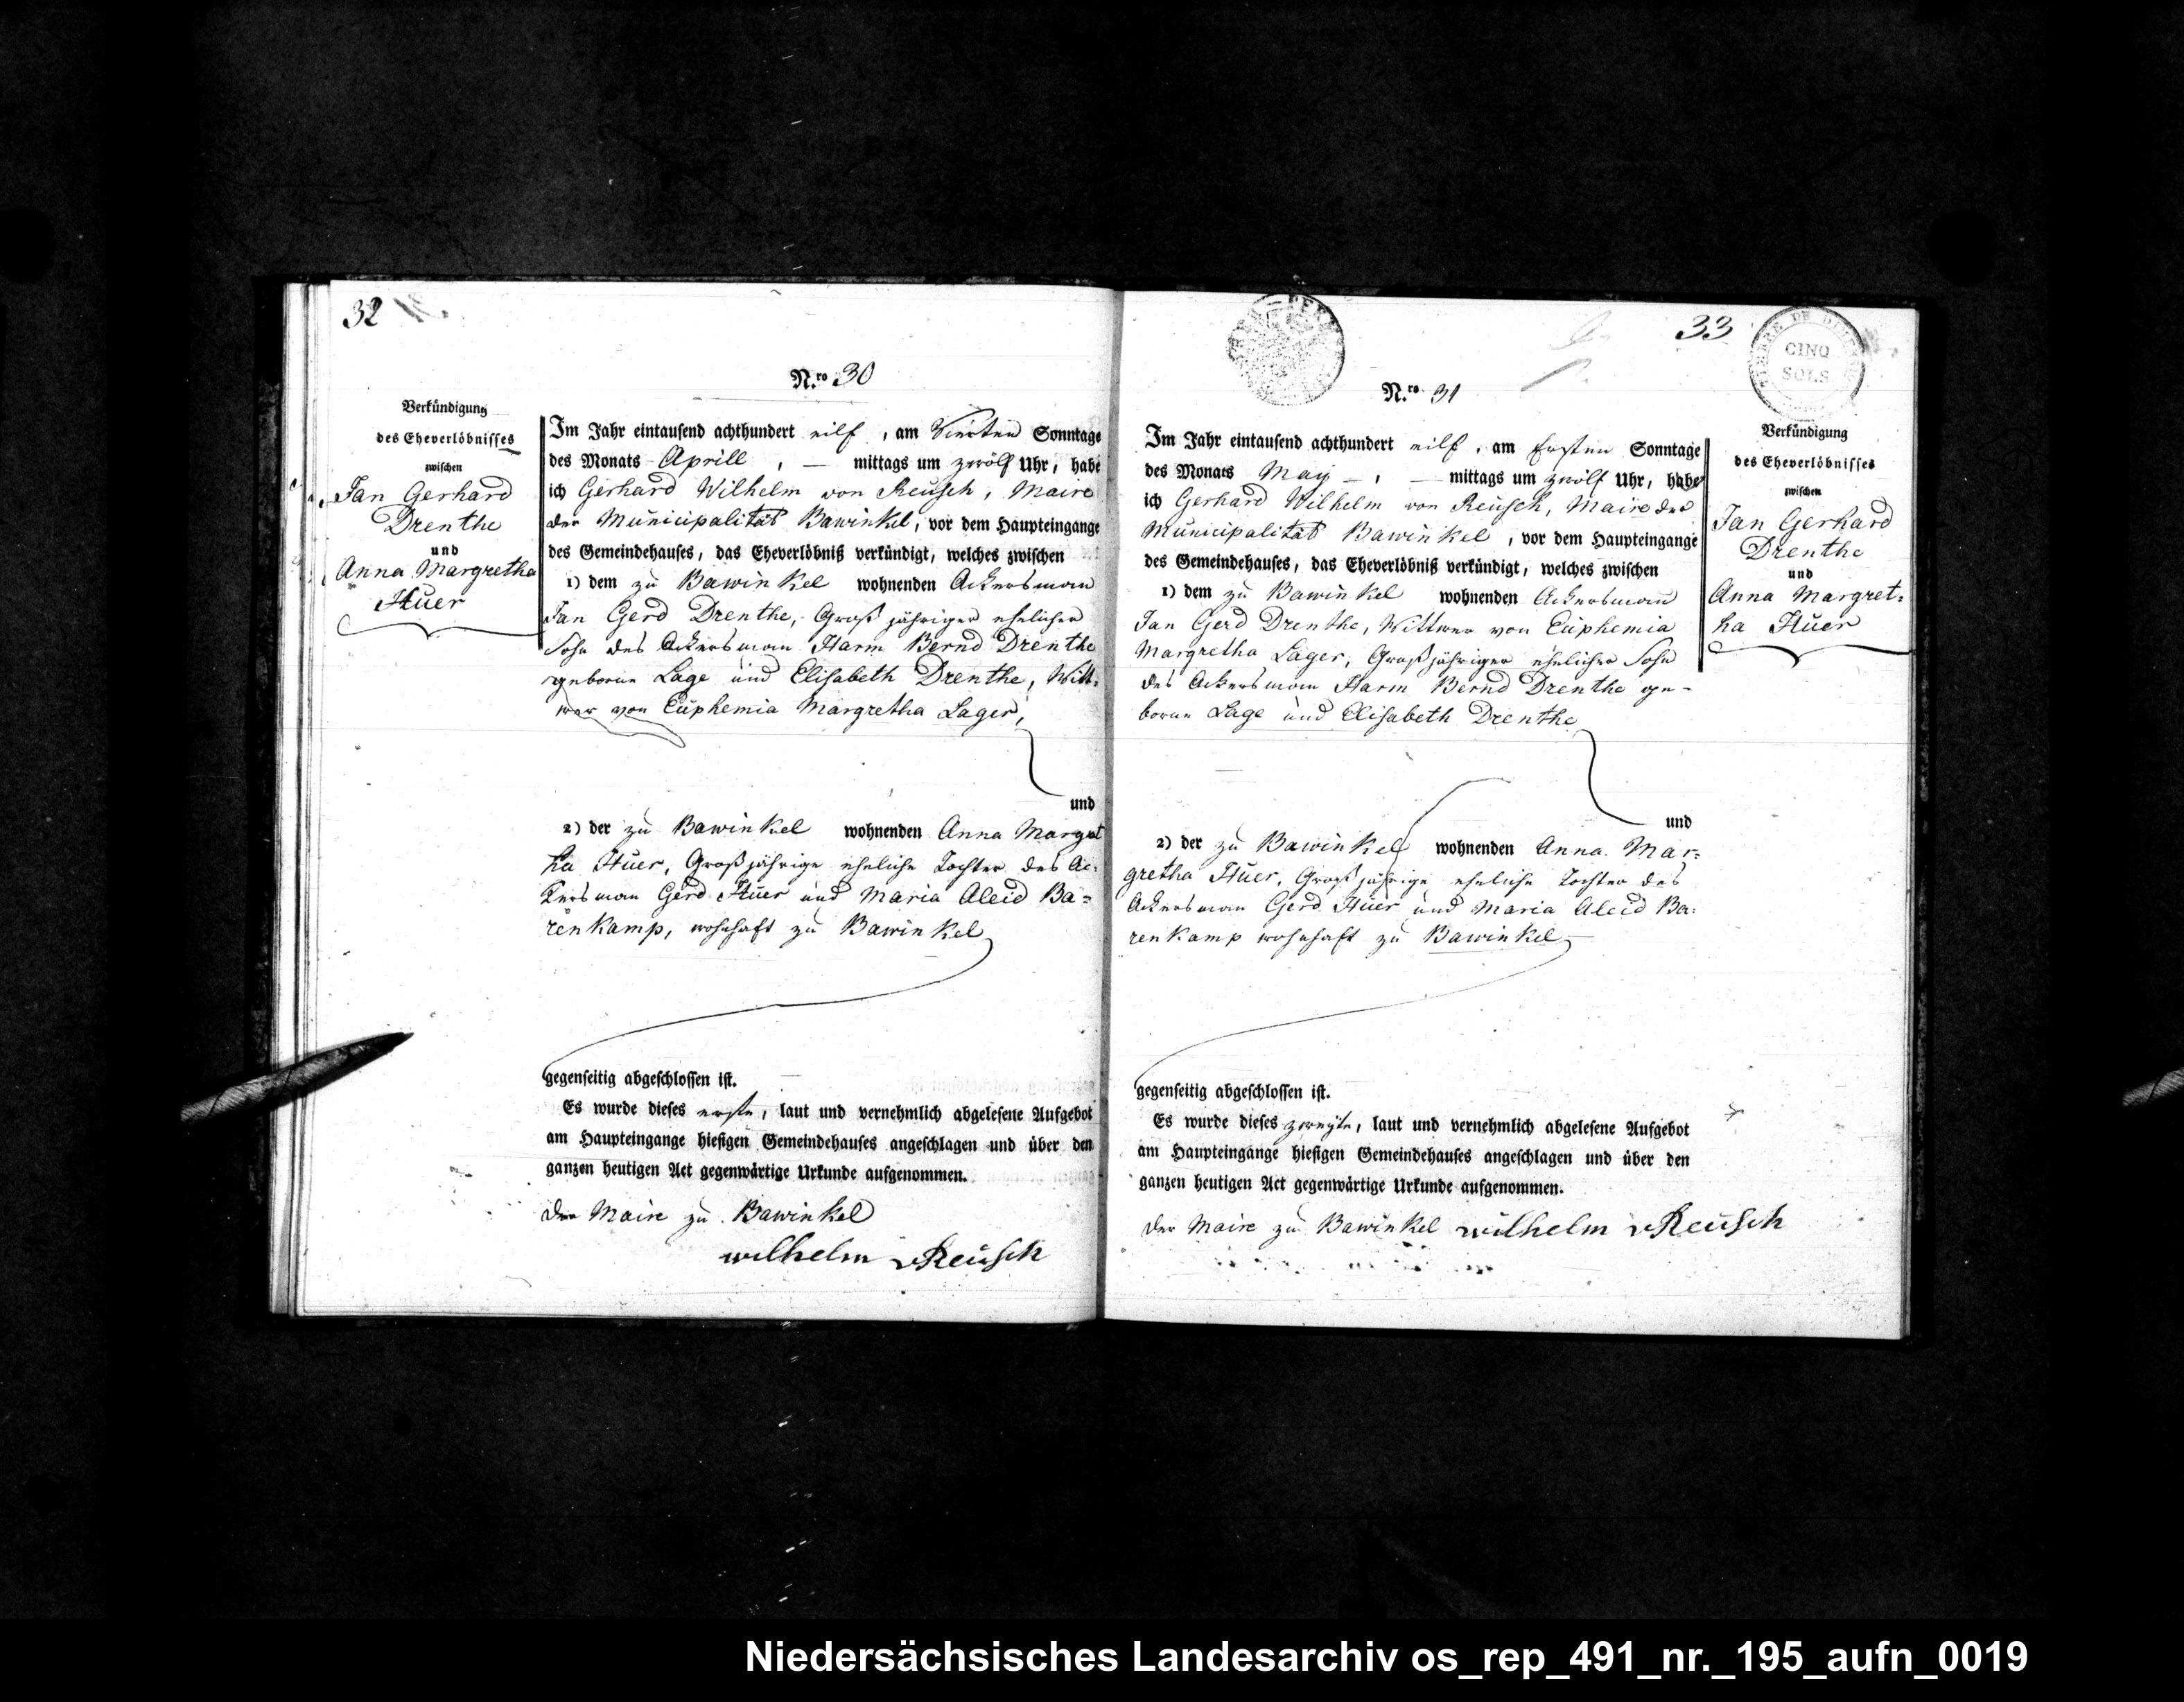 32
N.ro 30
Verkündigung
des Eheverlöbnisses
zwischen
Jan Gerhard
Drenthe
und
Anna Margretha
Huer
Im Jahr eintausend achthundert eilf, am Vierten Sonntage
des Monats Aprill, — mittags um zwölf Uhr, habe
ich Gerhard Wilhelm von Reusch, Maire
der Municipalität Bawinkel, vor dem Haupteingange
des Gemeindehauses, das Eheverlöbniß verkündigt, welches zwischen
1) dem zu Bawinkel wohnenden Ackersman
Jan Gerd Drenthe, Groß jähriger ehelicher
Sohn des Ackersman Harm Bernd Drenthe
geborne Lage und Elisabeth Drenthe, Witt-
wer von Euphemia Margretha Lager,
und
2) der zu Bawinkel wohnenden Anna Margret
ha Huer, Großjährige eheliche Tochter des Ac-
kersman Gerd Huer und Maria Aleid Ba-
renkamp, wohnhaft zu Bawinkel
gegenseitig abgeschlossen ist.
Es wurde dieses erste, laut und vernehmlich abgelesene Aufgebot
am Haupteingange hiesigen Gemeindehauses angeschlagen und über den
ganzen heutigen Act gegenwärtige Urkunde aufgenommen.
Der Maire zu Bawinkel
Wilhelm vReusch
33
TIMBRE DE DIM
CINQ
SOLS
N.ro 31
Im Jahr eintausend achthundert eilf, am Ersten Sonntage
des Monats May —, — mittags um zwölf Uhr, habe
ich Gerhard Wilhelm von Reusch, Maire der
Municipalität Bawinkel, vor dem Haupteingange
des Gemeindehauses, das Eheverlöbniß verkündigt, welches zwischen
1) dem zu Bawinkel wohnenden Ackersmann
Jan Gerd Drenthe, Wittwer von Euphemia
Margretha Lager, Großjähriger ehelicher Sohn
des Ackersman Harm Bernd Drenthe ge-
borne Lage und Elisabeth Drenthe
und
2) der zu Bawinkel wohnenden Anna Mar-
gretha Huer, Großjährige eheliche Tochter des
Ackersman Gerd Huer und Maria Aleid Ba-
renkamp wohnhaft zu Bawinkel
gegenseitig abgeschlossen ist.
Es wurde dieses zweyte, laut und vernehmlich abgelesene Aufgebot
am Haupteingange hiesigen Gemeindehauses angeschlagen und über den
ganzen heutigen Act gegenwärtige Urkunde aufgenommen.
Der Maire zu Bawinkel Wilhelm vReusch
Verkündigung
des Eheverlöbnisses
zwischen
Jan Gerhard
Drenthe
und
Anna Margret-
ha Huer
Niedersächsisches Landesarchiv os_rep_491_nr._195_aufn_0019